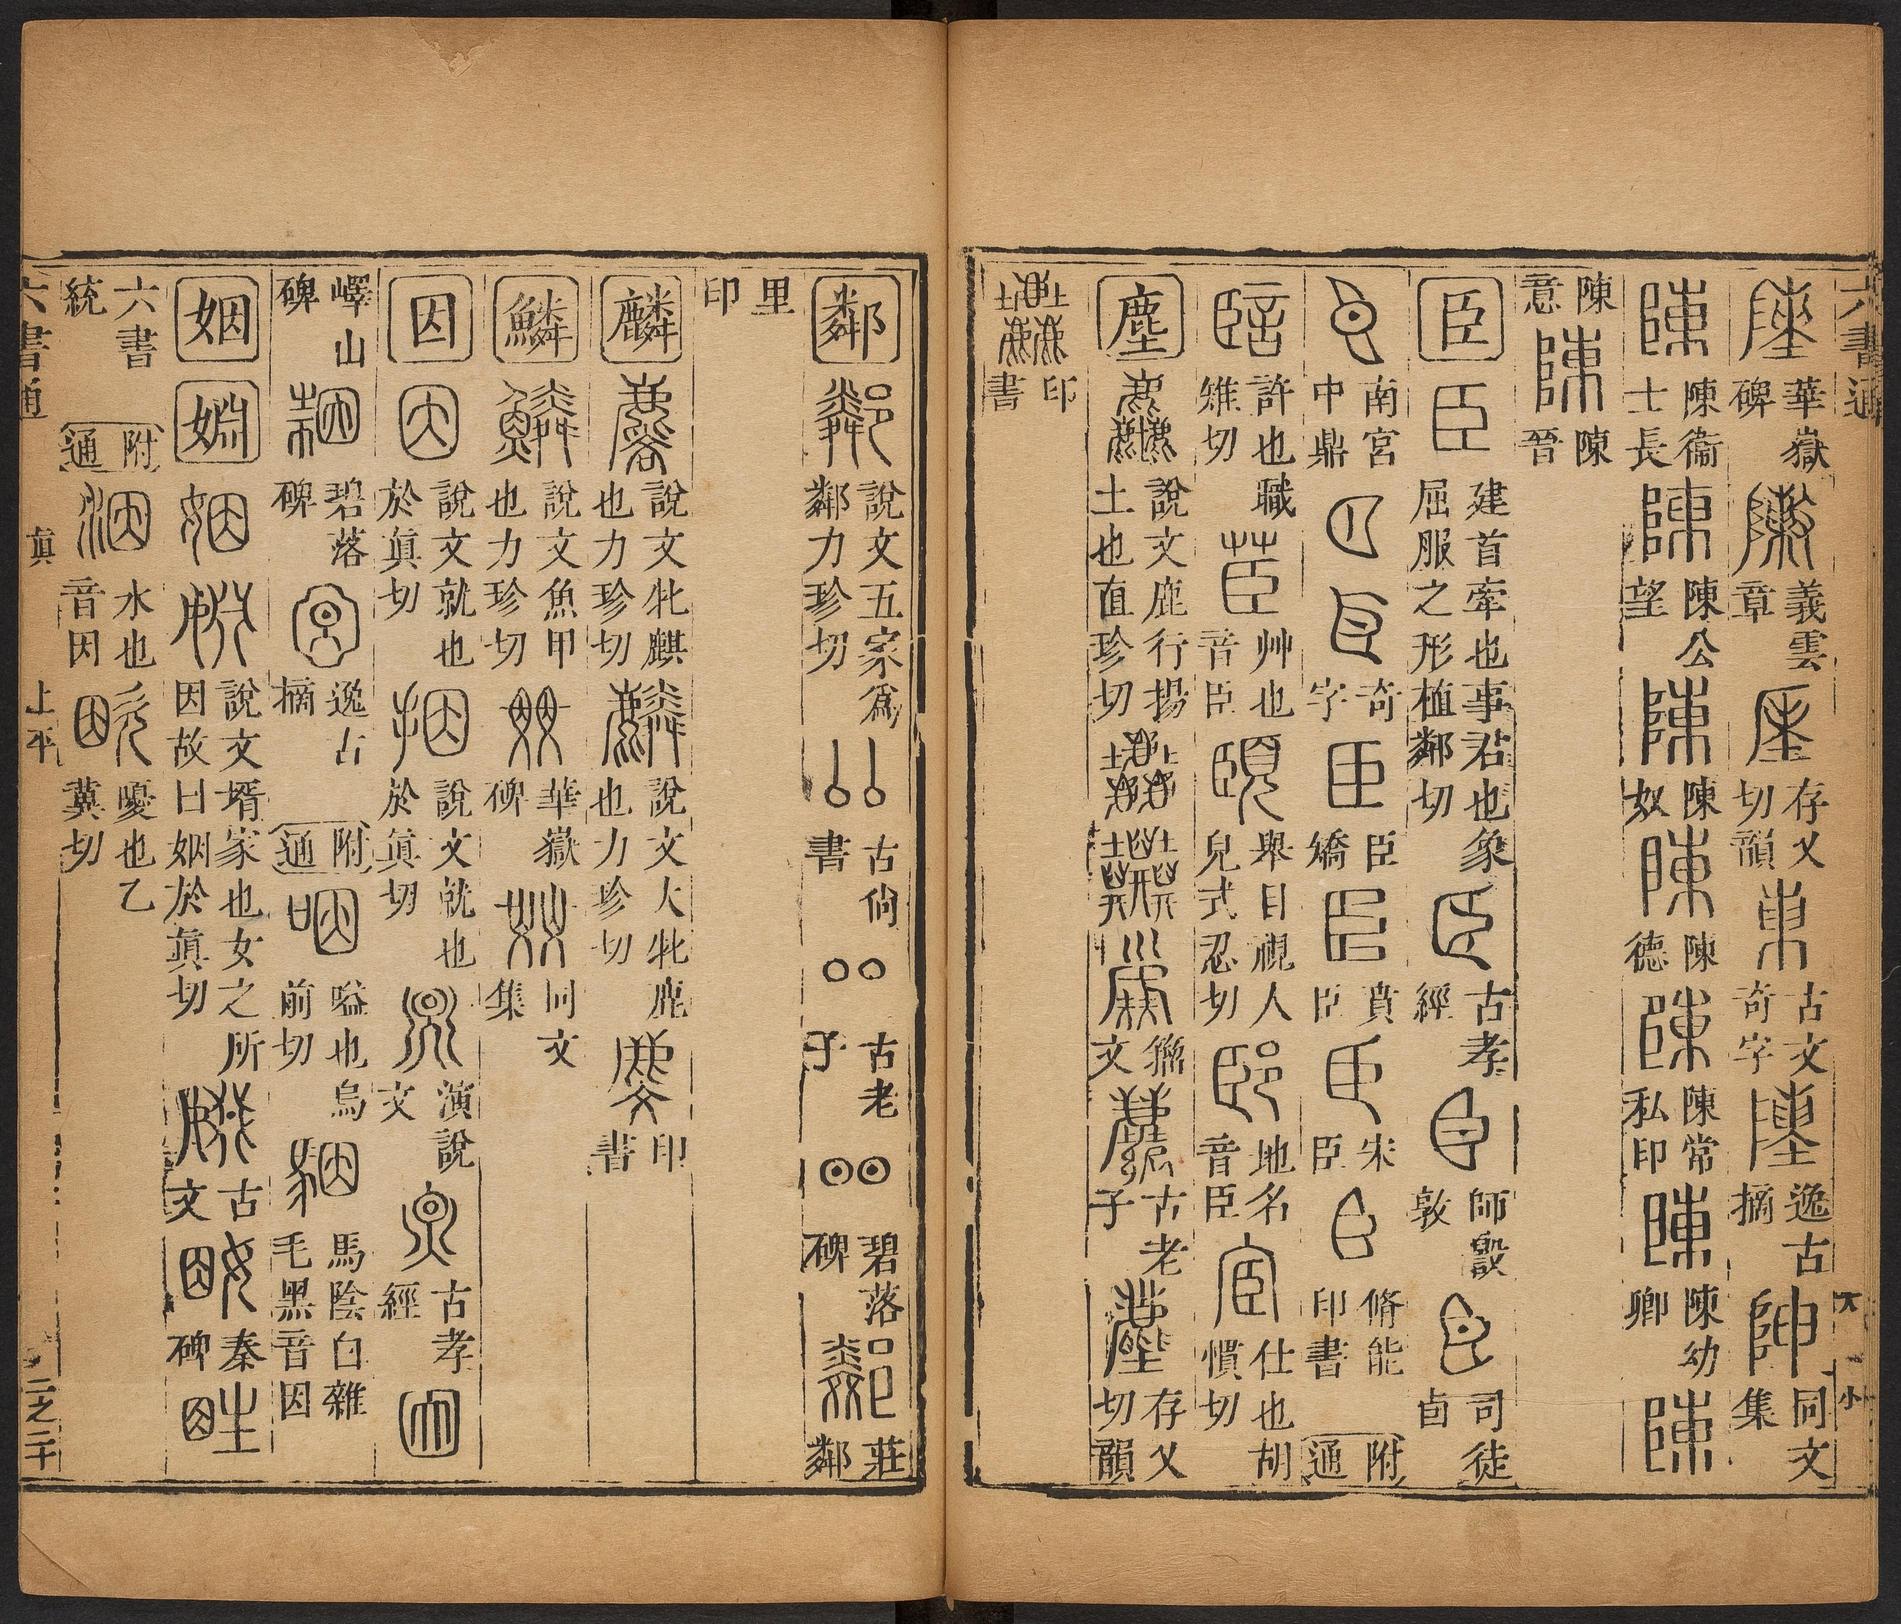 六書通
華嶽碑 義雲章 存乂切韻 古文奇字 逸古摘 同文集
陳衞士長 陳公望 陳奴 陳德 陳常私印 陳幼卿
陳意 陳 陳晉
臣 建首牽也事君也象屈服之形植鄰切 古孝經 師㲄敦 司徒卣
南宮中鼎 奇字 臣矯 賁臣 宋臣 脩能印書 附通
許也職雉切 艸也音臣 舉目視人皃式忍切 地名音臣 仕也胡慣切
塵 說文鹿行揚土也直珍切 籀文 古老子 存乂切韻
印書
鄰 說文五家爲鄰力珍切 古尙書 古老子 碧落碑 莊鄰
里印
麟 說文牝麒也力珍切 說文大牝鹿也力珍切 印書
鱗 說文魚甲也力珍切 華嶽碑 同文集
因 說文就也於眞切 說文就也於眞切 演說文 古孝經
嶧山碑 碧落碑 逸古摘 附通 嗌也烏前切 馬陰白雜毛黑音因
姻 婣 說文壻家也女之所因故曰姻於眞切 古文 秦碑
六書統 附通 水也音因 憂也乙冀切
六書通 眞 上平 二之二十